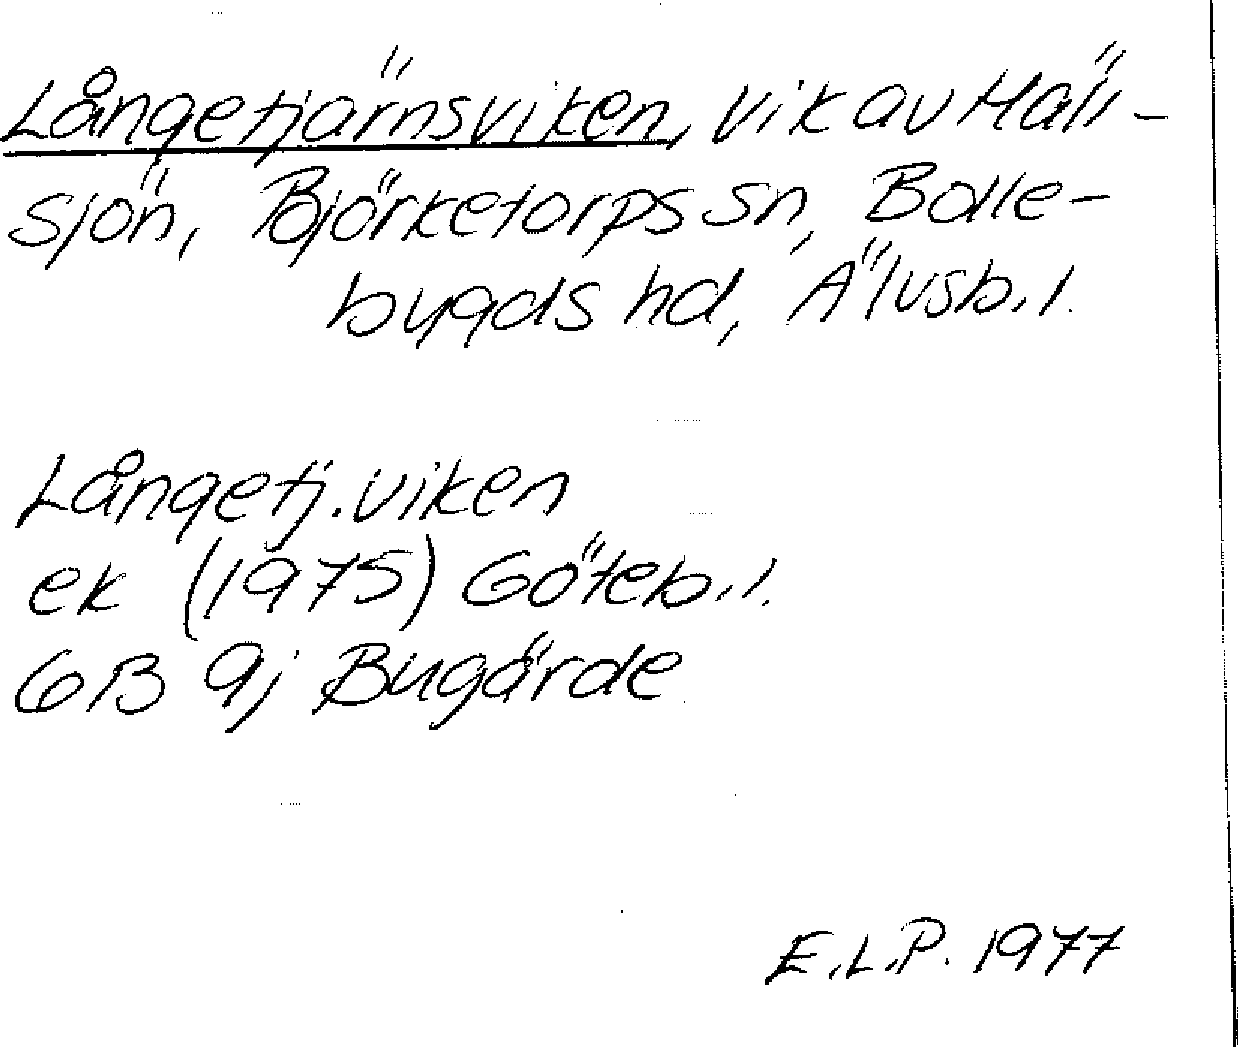 Långetjärnsviken, vik av Häll-
sjön, Björketorps sn, Bolle-
bygds hd, Älvsb. l.
Långetj.viken
ek (1975) Göteb. l.
6B 9j Bugärde
E.L.P. 1977